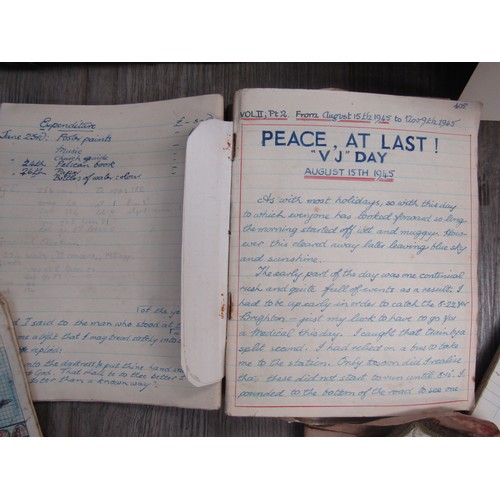 Expenditure £-s-d
June 23rd: Poster paints
" Music
" Church guide
" 24th Pelican book
" 26th Pops
Bottles of water colour
d I said to the man who stood at
me a light that I may tread safely into
replied:
into the darkness & put thine hand
of God. That shall be to thee better t
better than a known way!
VOL II; Pt 2. From August 15th 1945 to Nov 9th 1945.
PEACE, AT LAST!
"VJ" DAY
AUGUST 15TH 1945
As with most holidays, so with this day
to which everyone has looked forward so long
the morning started off wet and muggy. How-
ever this cleared away later leaving blue sky
and sunshine.
The early part of the day was one continual
rush and quite full of events as a result. I
had to be up early in order to catch the for
Brighton - just my luck to have to go for
a Medical this day. I caught that train by a
split second. I had relied on a bus to take
me to the station. Only too soon did I realise
that these did not start to run until I
pounded to the bottom of the road to see one